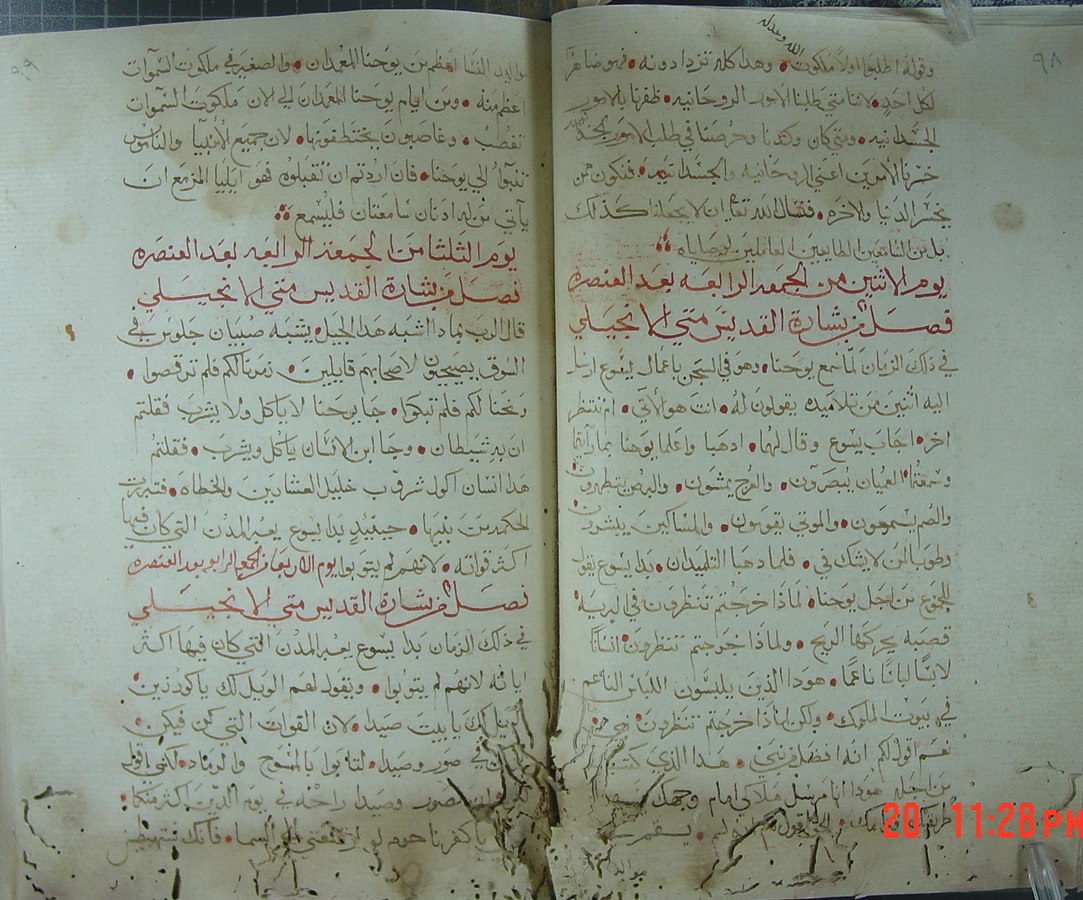 الله وعدله
٩٨
وقوله اطلبوا اولاً ملكوت • وهذا كله تزدادونه • فهو ضاهرًا
لكل احدٍ • لاننا متي طلبنا الامور الروحانيه • ظفرنا بالامور
الجسدانيه • ومتي كان وكدنا وحرصنا في طلب الامور الجسدانيه
خسرنا الامرين اعني الروحانيه والجسدانيه • فنكون من
يخسر الدنيا والاخره • فنسال الله تعالى ان لا يجعلنا كذلك
بل من السامعين الطايعين العاملين بوصاياه
يوم الاثنين من الجمعه الرابعه بعد العنصره
فصل من بشارة القديس متي الانجيلي
في ذلك الزمان لما سمع يوحنا • وهو في السجن باعمال يسوع ارسل
اليه اثنين من تلاميذه يقولون له • انت هو الاتي • ام ننتظر
اخر • اجاب يسوع وقال لهما • اذهبا واعلما يوحنا بما رايتما
وسمعتما العميان يبصرون • والعرج يمشون • والبرص يتطهرون
والصم يسمعون • والموتي يقومون • والمساكين يبشرون
وطوبا لمن لا يشك في • فلما ذهبا التلميذان • بدا يسوع يقول
للجموع من اجل يوحنا • لماذا خرجتم تنظرون في البريه
قصبه يحركها الريح • ولماذا خرجتم تنظرون انسانًا
لابسًا لباسًا ناعمًا • هوذا الذين يلبسون اللباس الناعم
في بيوت الملوك • ولكن لماذا خرجتم تنظرون نبي
نعم اقول لكم انه افضل من نبي • هذا الذي كتب
من اجله هوذا انا مرسل ملاكي امام وجهك
طريقك • الحق اقول لكم • لم يقم
20 11:28 PM
٩٩
مواليد النسا اعظم من يوحنا المعمدان • والصغير في ملكوت السموات
اعظم منه • ومن ايام يوحنا المعمدان الي الان ملكوت السموات
تغصب • وغاصبون يختطفونها • لان جميع الانبيا والناموس
تنبوا الي يوحنا • فان اردتم ان تقبلوه فهو ايليا المزمع ان
ياتي من له اذنان سامعتان فليسمع
يوم الثلثا من الجمعه الرابعه بعد العنصره
فصل من بشارة القديس متي الانجيلي
قال الرب بماذا اشبه هذا الجيل • يشبه صبيان جلوس في
السوق يصيحون لاصحابهم قايلين • زمرنا لكم فلم ترقصوا •
ونحنا لكم فلم تبكوا • جا يوحنا لا ياكل ولا يشرب فقلتم
ان به شيطان • وجا ابن الانسان ياكل ويشرب • فقلتم
هذا انسان اكول شروب خليل العشارين والخطاه • فتبررت
الحكمه من بنيها • حينيذٍ بدا يسوع يعير المدن التي كان فيها
اكثر قواته • لانهم لم يتوبوا يوم الاربعا من الجمعه الرابعه بعد العنصره
فصل من بشارة القديس متي الانجيلي
في ذلك الزمان بدا يسوع يعير المدن التي كان فيها اكثر
اياته لانهم لم يتوبوا • ويقول لهم الويل لك يا كورزين
الويل لك يا بيت صيدا • لان القوات التي كن فيكن
في صور وصيدا • لتابوا بالمسوح والرماد • لكني اقول
لكن ان لصور وصيدا راحه في يوم الدين اكثر منكما •
يا كفرناحوم لو ارتفعتي الي السما • فانك ستهبطين